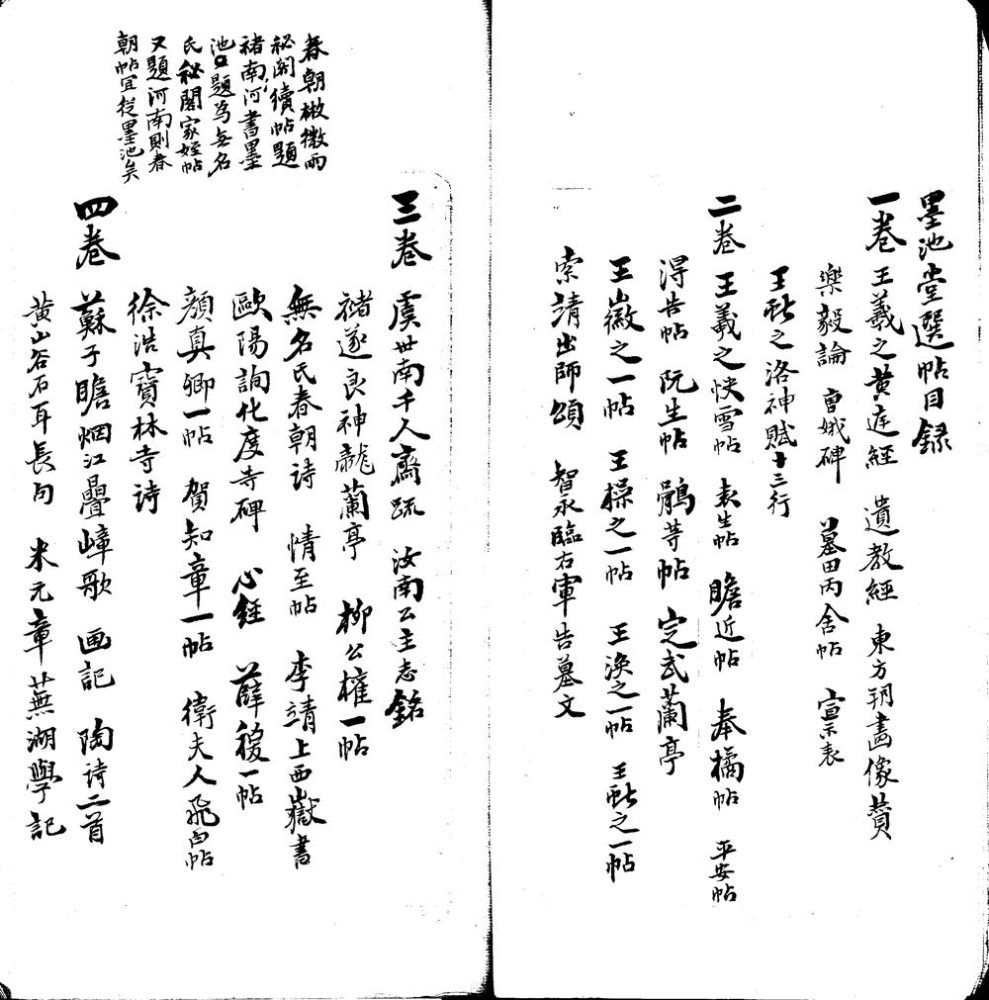 墨池堂選帖目録
一卷 王羲之黄庭經 遺教經 東方朔畫像贊
樂毅論 曹娥碑 墓田丙舍帖 宣示表
王獻之洛神賦十三行
二卷 王羲之快雪帖 袁生帖 瞻近帖 奉橘帖 平安帖
淂告帖 阮生帖 鶻等帖 定武蘭亭
王徽之一帖 王操之一帖 王渙之一帖 王獻之一帖
索靖出師頌 智永臨右軍告墓文
三卷 虞世南千人齋疏 汝南公主志銘
褚遂良神龍蘭亭 柳公權一帖
無名氏春朝詩 情至帖 李靖上西嶽書
歐陽詢化度寺碑 心經 薛稷一帖
顔真卿一帖 賀知章一帖 衛夫人飛白帖
徐浩寶林寺诗
四卷 蘇子瞻烟江疊嶂歌 画記 陶诗二首
黄山谷石耳長句 米元章蕪湖學記
春朝散微雨
秘閣續帖題
褚南河書墨
池口題為無名
氏秘閣家姪帖
又題河南則春
朝帖宜從墨池矣